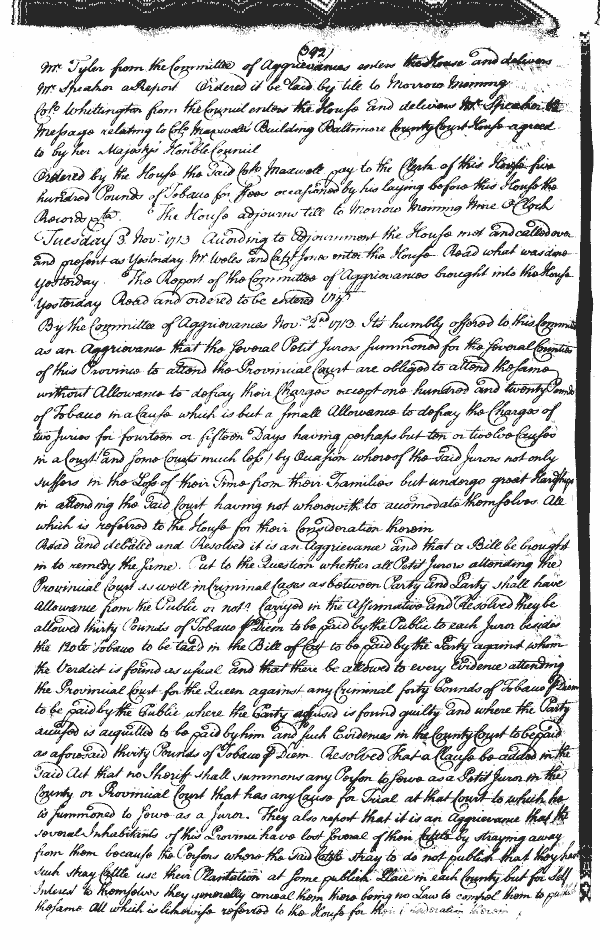 (342)
Mr. Tyler from the Committee of Aggrievances enters the House and delivers
Mr Speaker a Report Ordered it be laid by till to Morrow Morning
Colo. Whittington from the Council enters the House and delivers Mr Speaker the
Message relating to Colo. Maxwells Building Baltimore County Court House agreed
to by her Majestys Honble Council
Ordered by the House the said Colo. Maxwell pay to the Clerk of this House five
hundred Pounds of Tobacco for Fees occasioned by his laying before this House the
Records &ca. The House adjourns till to Morrow Morning Nine o Clock
Tuesday 3 Novr 1713 According to Adjournment the House met and called over
and present as Yesterday Mr Wells and Capt Jones enter the House Read what was done
Yesterday. The Report of the Committee of Aggrievances brought into the House
Yesterday Read and ordered to be entered Vizt
By the Committee of Aggrievances Novr 2nd 1713 Its humbly offered to this Committee
as an Aggrievance that the several Petit Jurors summoned for the several Counties
of this Province to attend the Provincial Court are obliged to attend the same
without Allowance to defray their Charges except one hundred and twenty Pounds
of Tobacco in a Cause which is but a small Allowance to defray the Charges of
two Juries for fourteen or fifteen Days having perhaps but ten or twelve Causes
in a Court (and some Courts much less) by Occasion whereof the said Jurors not only
suffers in the Loss of their Time from their Families but undergo great Hardships
in attending the said Court having not wherewith to accomodate themselves All
which is referred to the House for their Consideration therein
Read and debated and Resolved it is an Aggrievance and that a Bill be brought
in to remedy the same. Put to the Question whether all Petit Jurors attending the
Provincial Court as well in Criminal Cases as between Party and Party shall have
Allowance from the Public or not? Carryed in the Affirmative and Resolved they be
allowed thirty Pounds of Tobacco ⅌ Diem to be paid by the Public to each Juror besides
the Tobacco to be taxd in the Bill of Cost to be paid by the Party against whom
the Verdict is found as usual and that there be allowed to every Evidence attending
the Provincial Court for the Queen against any Criminal forty Pounds of Tobacco ⅌ Diem
to be paid by the Public where the Party accused is found guilty and where the Party
accused is acquitted to be paid by him and such Evidences in the County Court to be paid
as aforesaid thirty Pounds of Tobacco ⅌ Diem. Resolved that a Clause be added in the
said Act that no Sheriff shall summons any Person to serve as a Petit Juror in the
County or Provincial Court that has any Cause for Trial at that Court to which he
is summoned to serve as a Juror. They also report that it is an Aggrievance that the
several Inhabitants of this Province have lost several of their Cattle by straying away
from them because the Persons where the said Cattle stray to do not publish that they have
such stray Cattle use their Plantation at some publick Place in each County but for self
Interest to themselves they generally conceal them there being no Law to compel them to publish
the same All which is likewise referred to the House for their Consideration therein